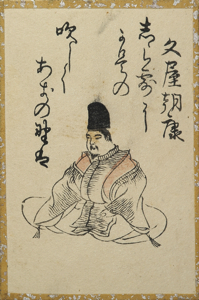 文屋朝康
しら露に
かせの
吹しく
あきの野は